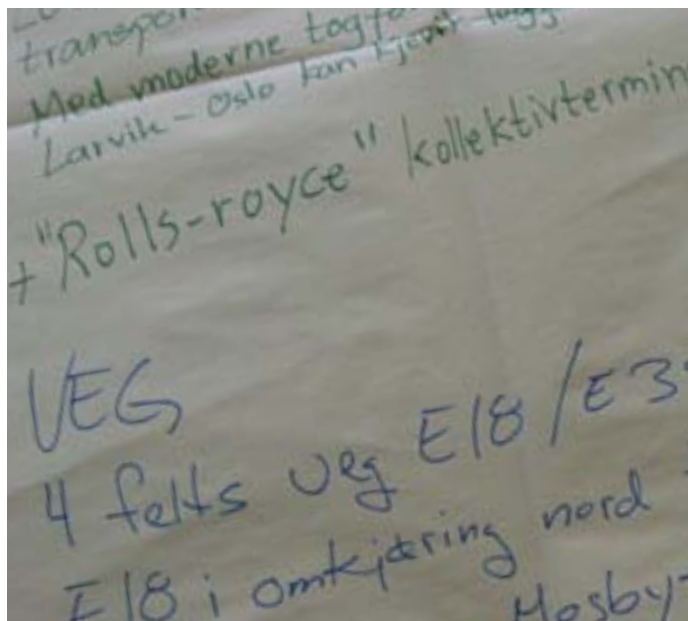 transpor
Med moderne togfo
Larvik - Oslo kan
+ "Rolls-royce" kollektivtermin
VEG
4 felts veg E18/E3
E18 i omkjøring nord
Mosby-